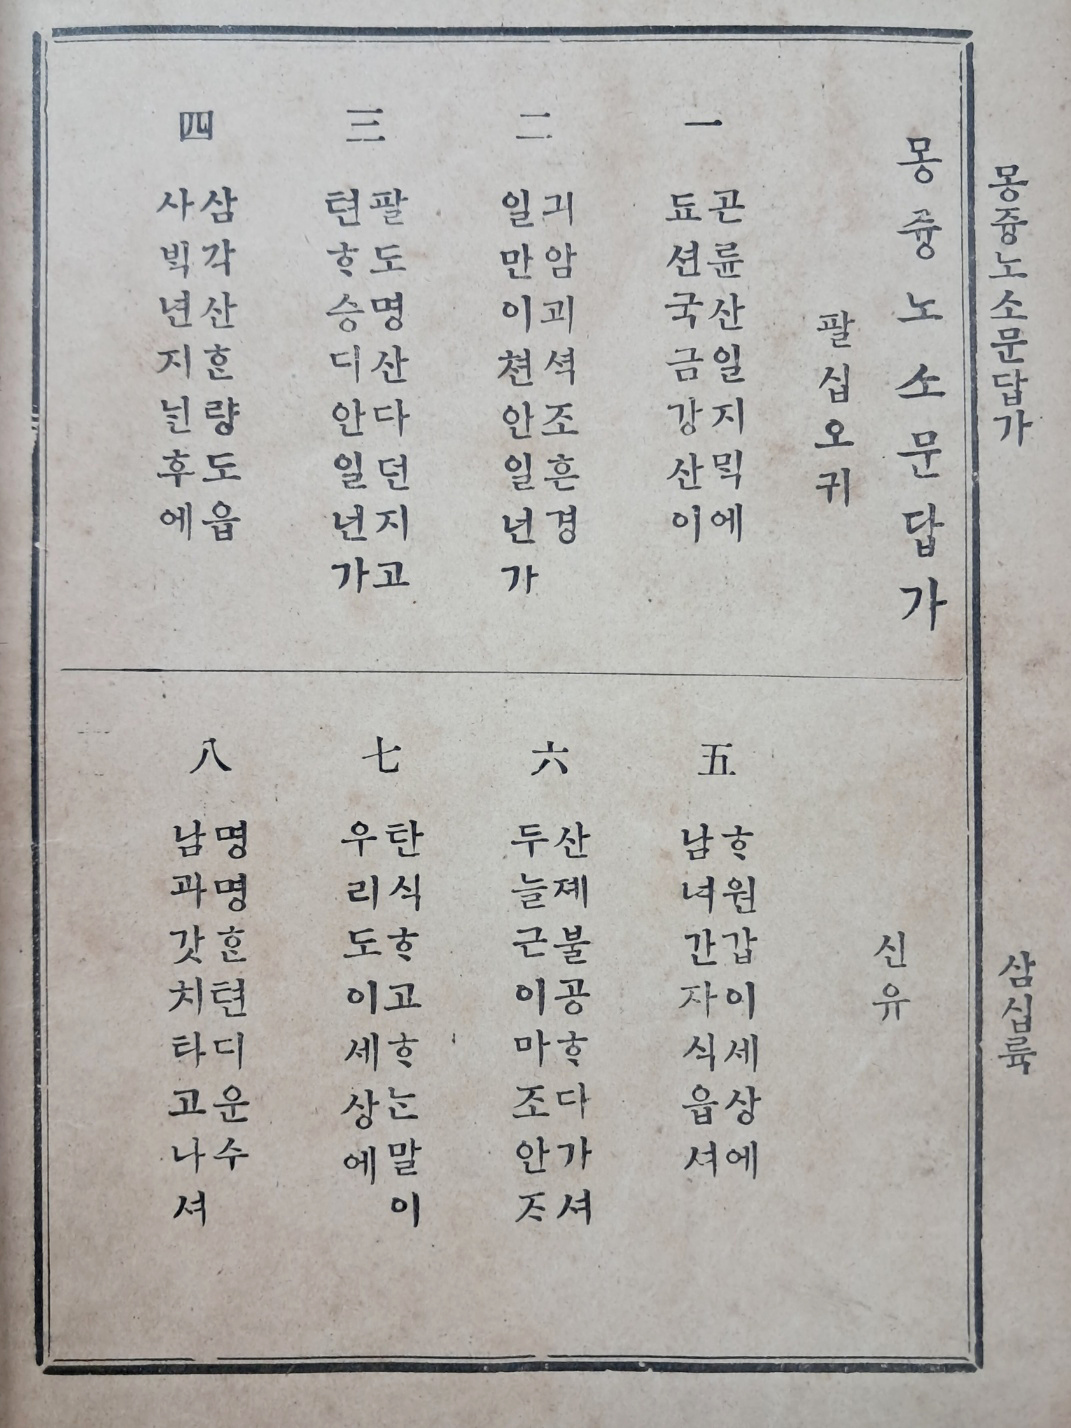 몽즁노소문답가
삼십륙
몽즁노소문답가
팔십오귀
신유
一
곤륜산일지믹에
됴션국금강산이
二
긔암괴셕조흔경
일만이쳔안일년가
三
팔도명산다던지고
텬ᄒᆞ승디안일년가
四
삼각산ᄒᆞᆫ량도읍
사ᄇᆡᆨ년지ᄂᆡᆫ후에
五
ᄒᆞ원갑이세상에
남녀간자식읍셔
六
산졔불공ᄒᆞ다가셔
두늘근이마조안ᄌᆞ
七
탄식ᄒᆞ고ᄒᆞᄂᆞᆫ말이
우리도이세상에
八
명명ᄒᆞᆫ텬디운수
남과갓치타고나셔